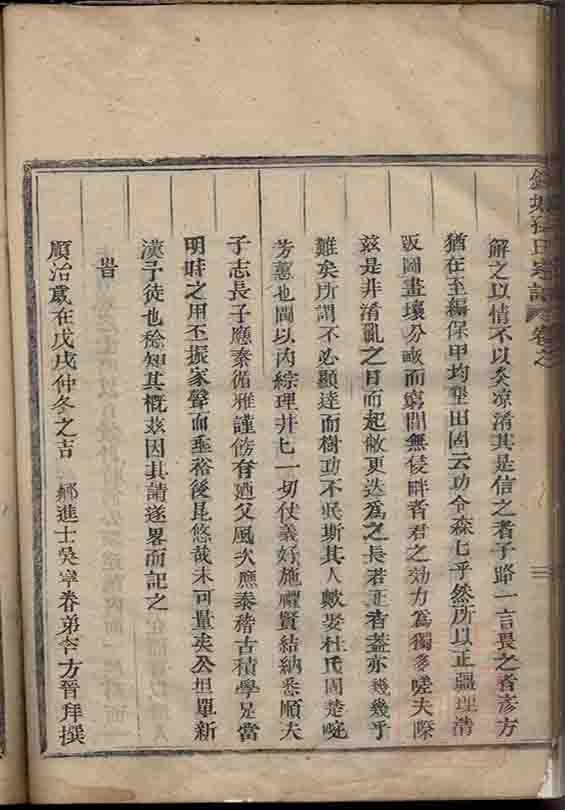 解之以情不以炎凉淆其是信之者子路一言畏之者彦方
猶在至編保甲均墾田固云功令森七乎然所以正疆理清
版圖畫壤分畝而窮閻無侵畔者君之効力為獨多嗟夫際
兹是非淆亂之日而起敝更迭為之長若正者蓋亦幾幾乎
難矣所謂不必顯達而樹功不泯斯其人歟娶杜氏固楚畹
芳蕙也閫以内綜理井七一切仗義好施禮賢結納悉順夫
子志長子應泰循雅謹俻有廼父風次應泰稽古積學足當
明時之用丕振家聲而垂裕後昆悠哉未可量矣公坦單新
漢子徒也徐知其概兹因其請遂畧而記之
旹
順治歲在戊戌仲冬之吉 鄉進士吳寧眷弟李方晉拜撰
氏宗譜 卷之